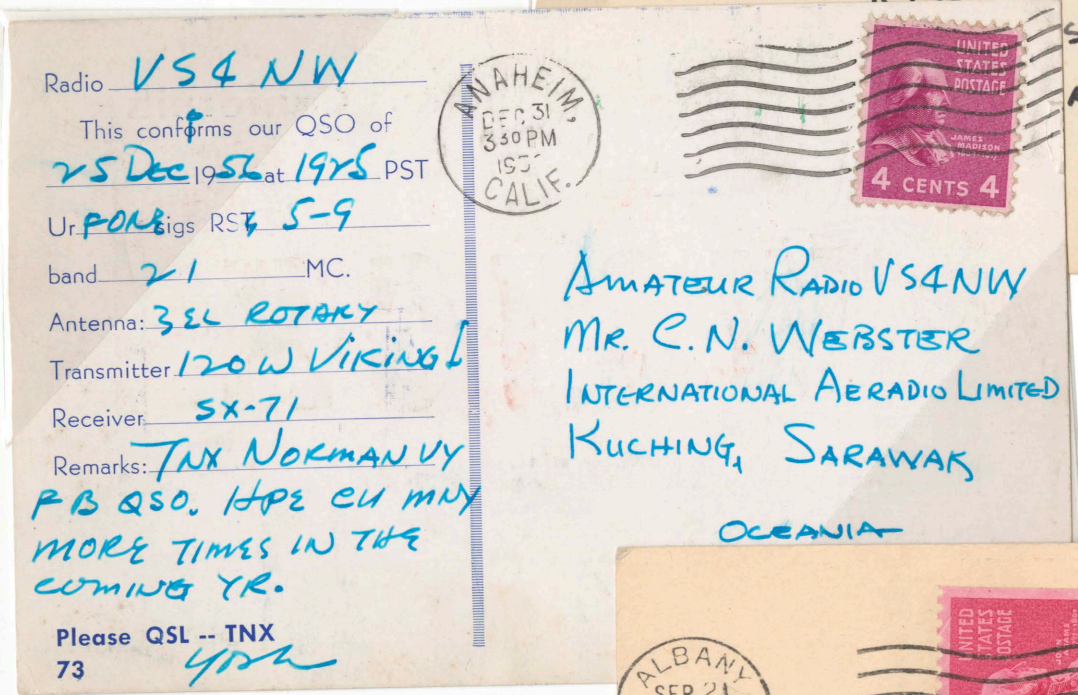 Radio VS4NW
This confirms our QSO of
25 Dec 1956 at 1925 PST
Ur FONE sigs RST 5-9
band 21 MC.
Antenna: 3 EL ROTARY
Transmitter 120 W VIKING I
Receiver SX-71
Remarks: TNX NORMAN VY
FB QSO. HPE CU MNY
MORE TIMES IN THE
COMING YR.
Please QSL -- TNX
73
ANAHEIM,
DEC 31
3 30 PM
CALIF.
UNITED
STATES
POSTAGE
JAMES
MADISON
4 CENTS 4
AMATEUR RADIO VS4NW
MR. C.N. WEBSTER
INTERNATIONAL AERADIO LIMITED
KUCHING, SARAWAK
OCEANIA
ALBANY
SEP 21
UNITED
STATES
POSTAGE
JOHN
ADAMS